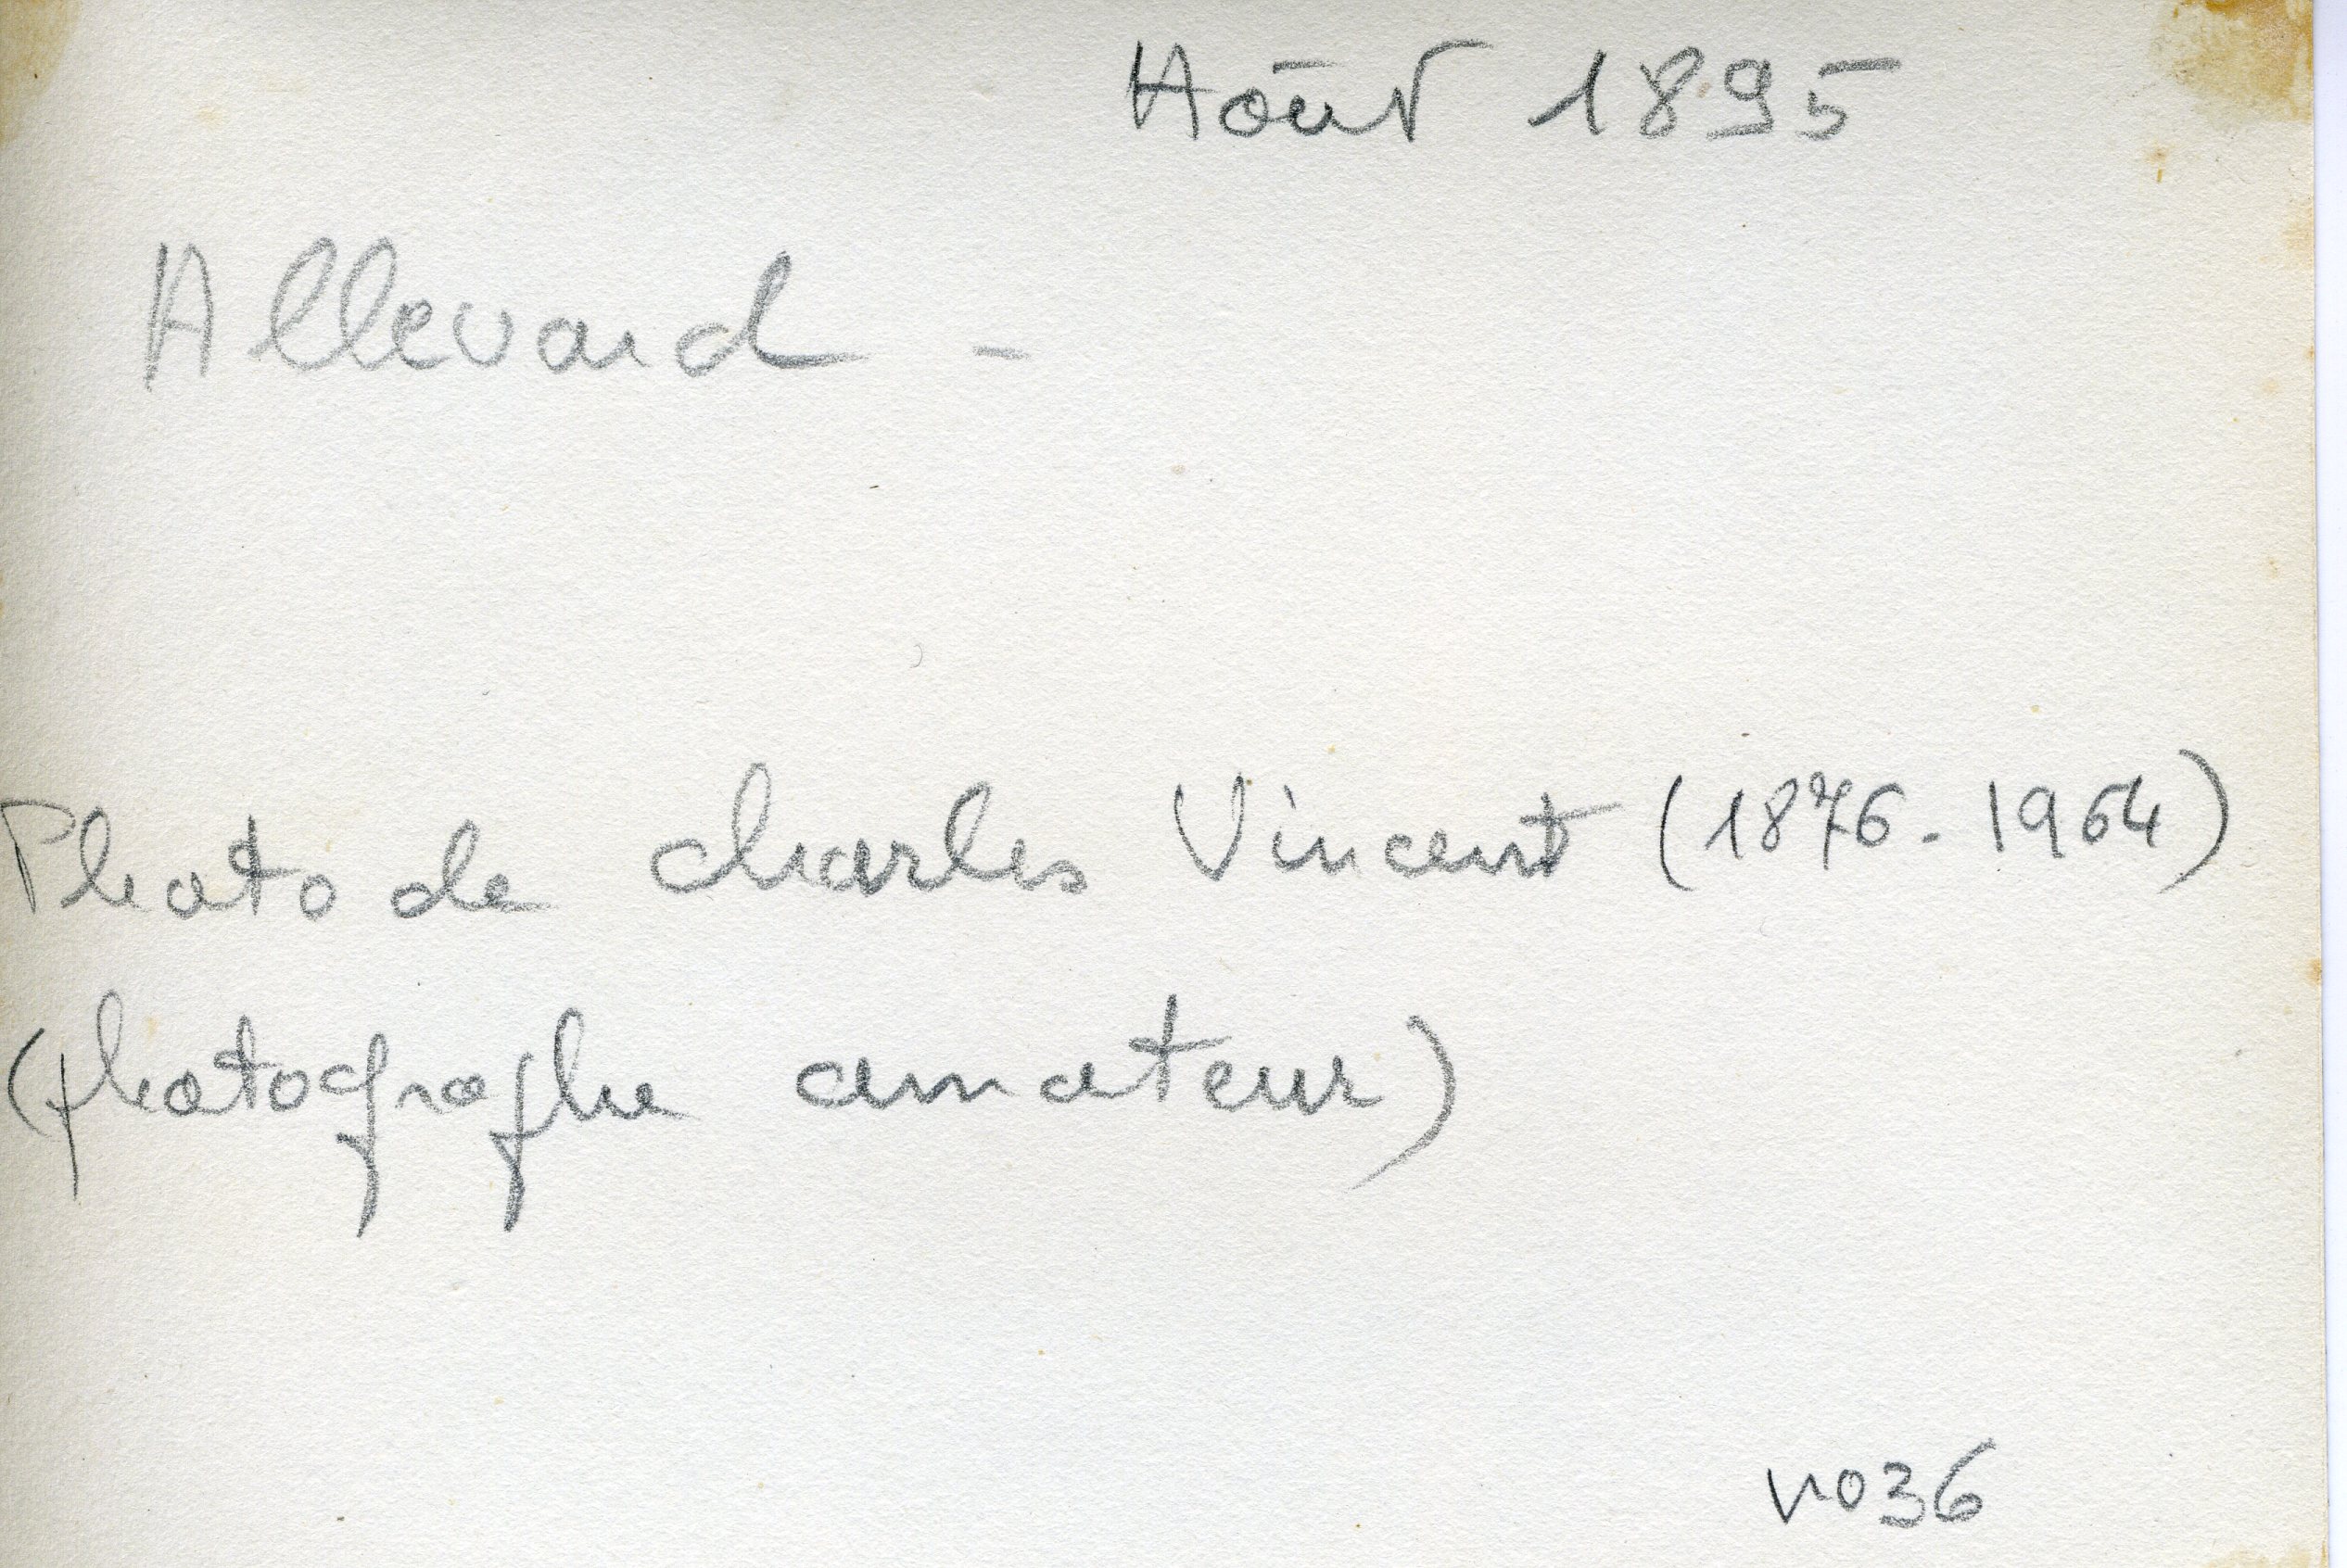 Août 1895
Allevard -
Photo de charles Vincent (1876-1964)
(photographe amateur)
no36